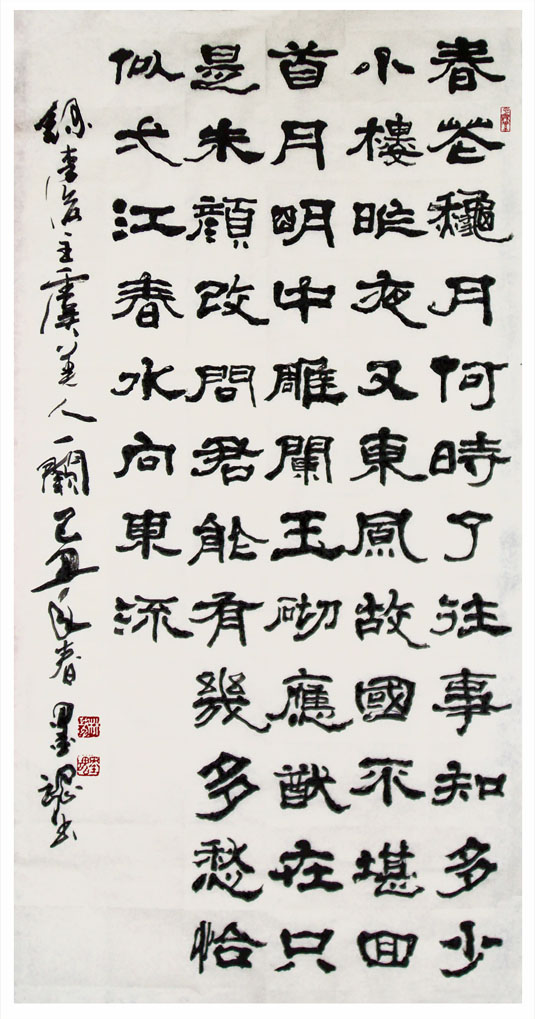 春花龝月何時了往事知多少
小樓昨夜又東風故國不堪回
首月明中雕闌玉砌應猷在只
是朱顔改問君能有幾多愁恰
似弌江春水向東流
錄李後主虞美人一闋己丑春墨书